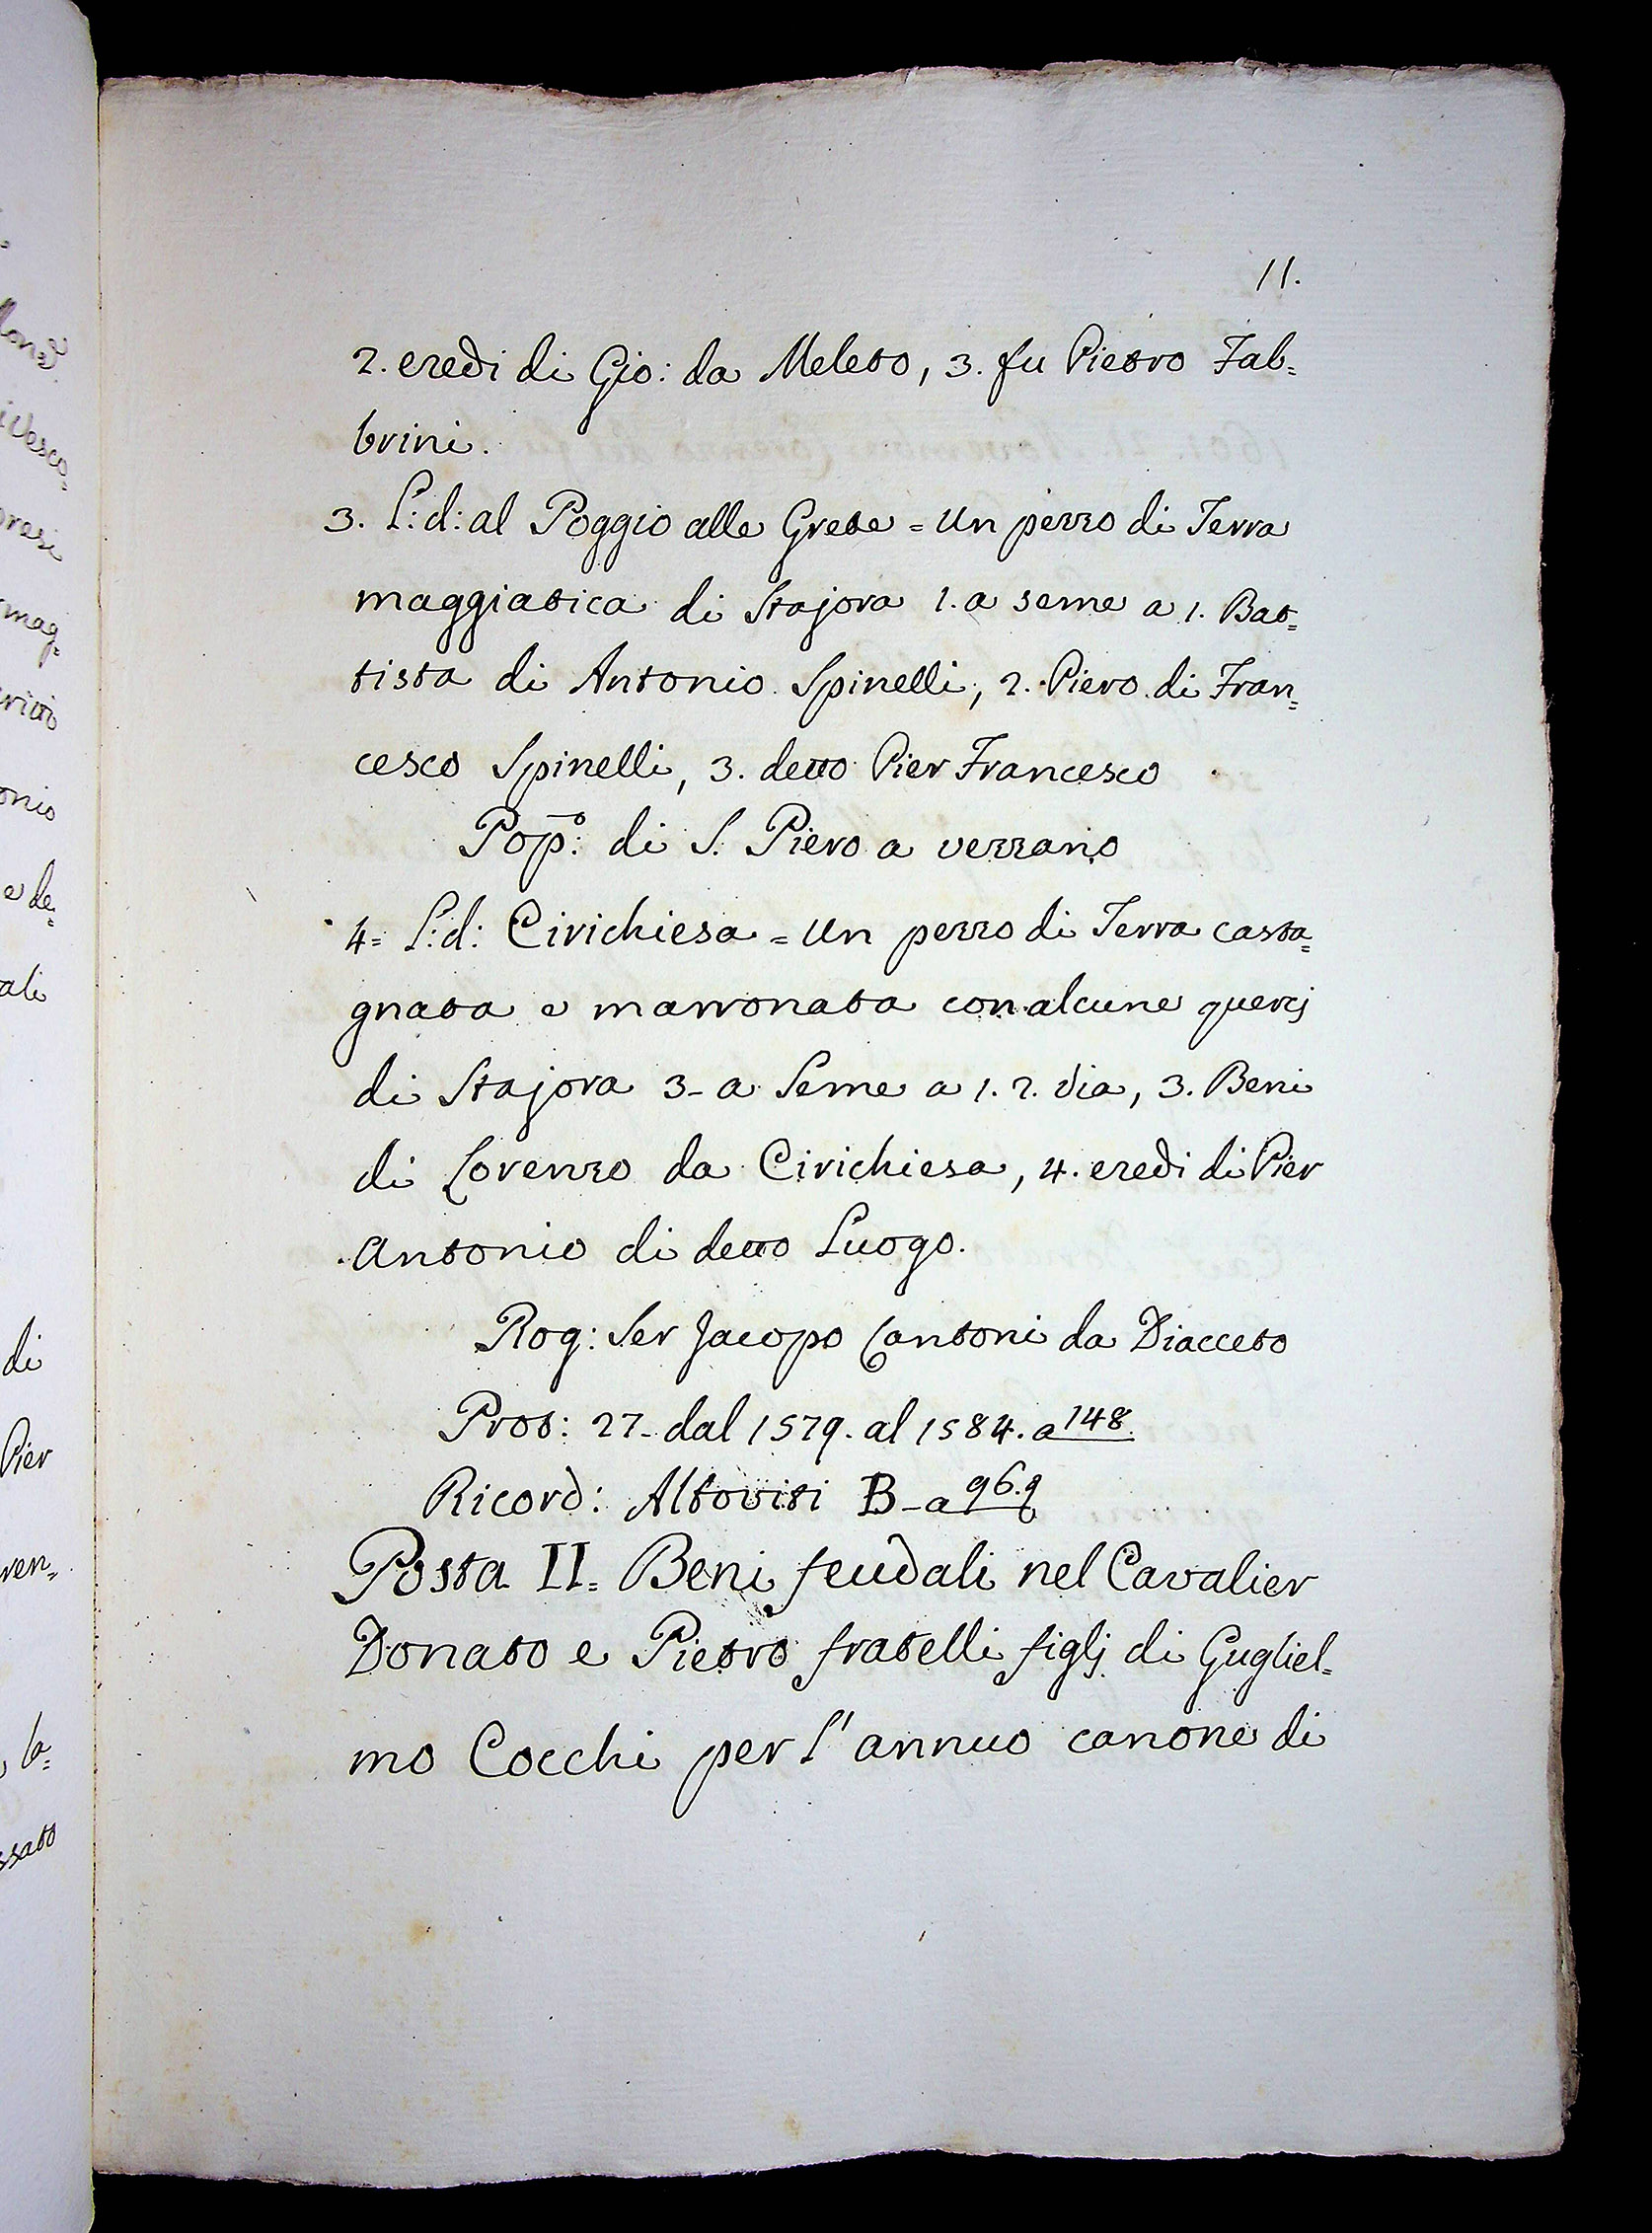 11.
2. eredi di Gio: da Meleto, 3. fu Pietro Fab=
brini.
3. L:d: al Poggio alle Grete = Un pezzo di Terra
maggiatica di Stajora 1. a seme a 1. Bat=
tista di Antonio Spinelli, 2. Piero di Fran=
cesco Spinelli, 3. detto Pier Francesco
Pop.º: di S. Piero a verzano
4= L:d: Cirichiesa = Un pezzo di Terra casta=
gnata e marronata con alcune quercj
di Stajora 3- a Seme a 1. 2. via, 3. Beni
di Lorenzo da Cirichiesa, 4. eredi di Pier
Antonio di detto Luogo.
Rog: Ser Jacopo Cantoni da Diacceto
Prot: 27- dal 1579. al 1584. a 148.
Ricord: Altoviti B- a 96.
Posta II= Beni feudali nel Cavalier
Donato e Pietro fratelli figlj di Gugliel=
mo Cocchi per l'annuo canone di
di
Pier
ven=
ssato